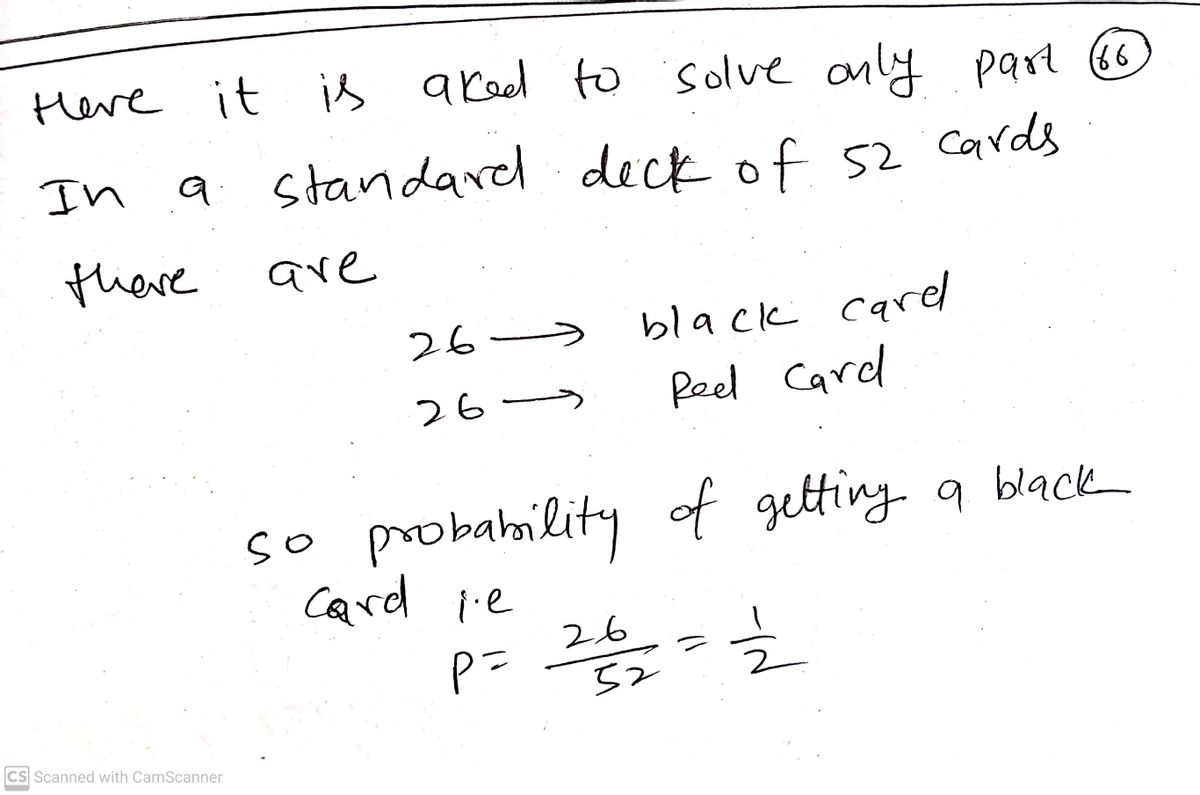 Here it is aked to solve only part 66
In a standard deck of 52 cards
there are
26 → black card
26 → Red Card
so probability of getting a black
Card i.e
P = 26/52 = 1/2
CS Scanned with CamScanner